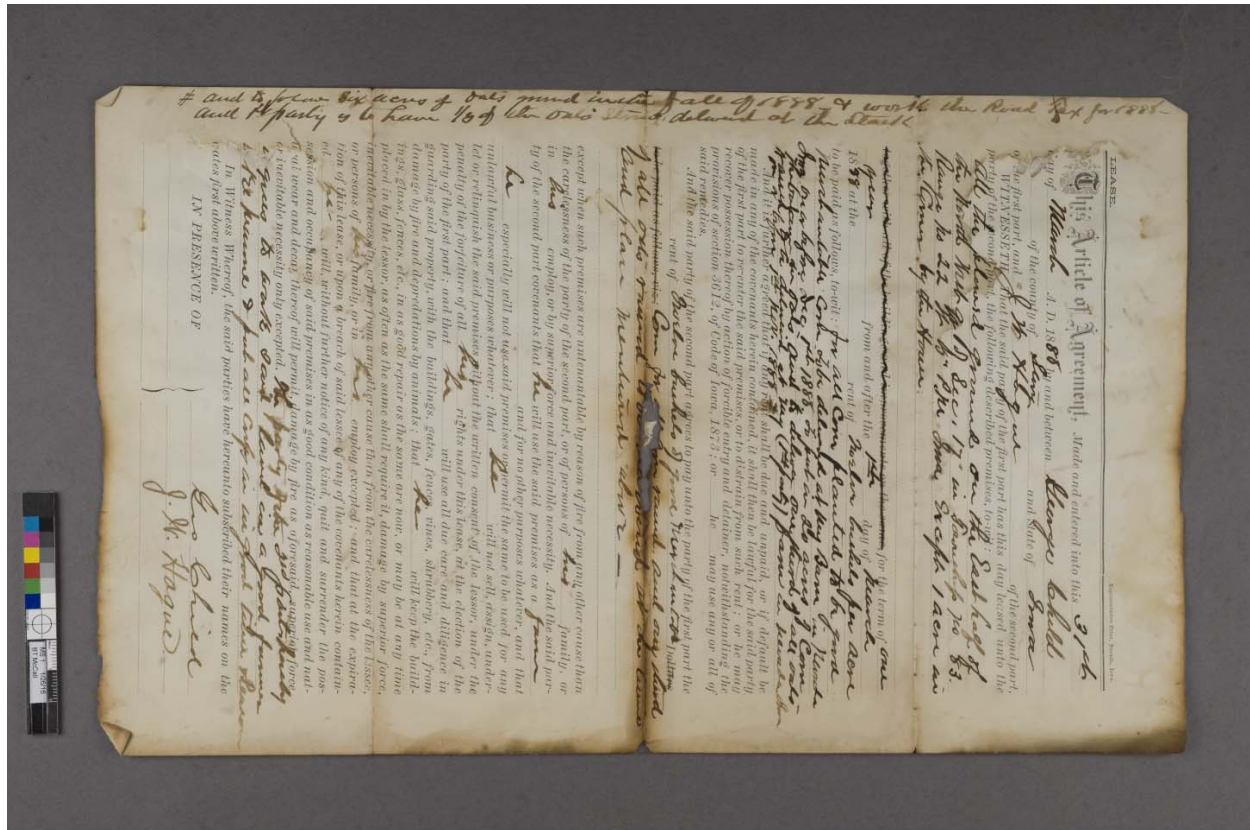 LEASE.
This Article of Agreement, Made and entered into this 3rd
day of March A. D. 1888, by and between George Child
of the county of Story and State of Iowa
of the first part, and J. W. Hague of the second part,
WITNESSETH, that the said party of the first part has this day leased unto the
party of the second part, the following described premises, to-wit:
All the plowed ground on the East half of
the North West Sec. 17 in Township no 83
Range no 22 Except 1 acre in
the corner by the House.
for the term of one
year from and after the day of March
1888 at the rent of Twelve bushels per acre
to be paid as follows, to-wit: for all Corn planted to be good
Merchantable Corn to be delivered at my Barn in Nevada
acres
in oats and to deliver one third of all oats
And it is further agreed that if any rent shall be due and unpaid, or if default be
made in any of the covenants herein contained, it shall then be lawful for the said party
of the first part to reenter the said premises, or to distrain from such rent; or he may
recover possession thereof by action of forcible entry and detainer, notwithstanding the
provisions of section 3612, of Code of Iowa, 1873; or he may use any or all of
said remedies.
And the said party of the second part agrees to pay unto the party of the first part the
rent of Twelve bushels of good Merchantable Dollars
Corn per and one third
of all oats raised to be delivered at the time
and place mentioned above
except when such premises are untenantable by reason of fire from any other cause than
the carelessness of the party of the second part, or of persons of his family, or
in his employ, or by superior force and inevitable necessity. And the said par-
ty of the second part covenants that he will use the said premises as a farm
and for no other purposes whatever, and that
he especially will not use said premises or permit the same to be used for any
unlawful business or purposes whatever; that he will not sell, assign, under-
let or relinquish the said premises without the written consent of the lessor, under the
penalty of the forfeiture of all his rights under this lease, at the election of the
party of the first part; and that he will use all due care and diligence in
guarding said property, with the buildings, gates, fences, vines, shrubbery, etc., from
damage by fire and depredations by animals; that he will keep the build-
ings, glass, fences, etc., in as good repair as the same are now, or may be at any time
placed in by the lessor, as often as the same shall require it, damage by superior force,
inevitable necessity, or fire from any other cause than from the carelessness of the lessee,
or persons of his family, or in his employ, excepted; and that at the expira-
tion of this lease, or upon a breach of said lessee of any of the covenants herein contain-
ed, he will, without further notice of any kind, quit and surrender the pos-
session and occupancy of said premises in as good condition as reasonable use and nat-
ural wear and decay thereof will permit, damage by fire as aforesaid, superior force,
or inevitable necessity only excepted. The party of the 2nd party
agrees to work said land in a good farmer
like manner & put all crop in in good time & season
In Witness Whereof, the said parties have hereunto subscribed their names on the
dates first above written.
IN PRESENCE OF
Geo Child
J. W. Hague
# and to plow six acres of oats ground in the fall of 1888 & work the Road Tax for 1888
and 1st party is to have 1/3 of the oats straw delivered at the stack